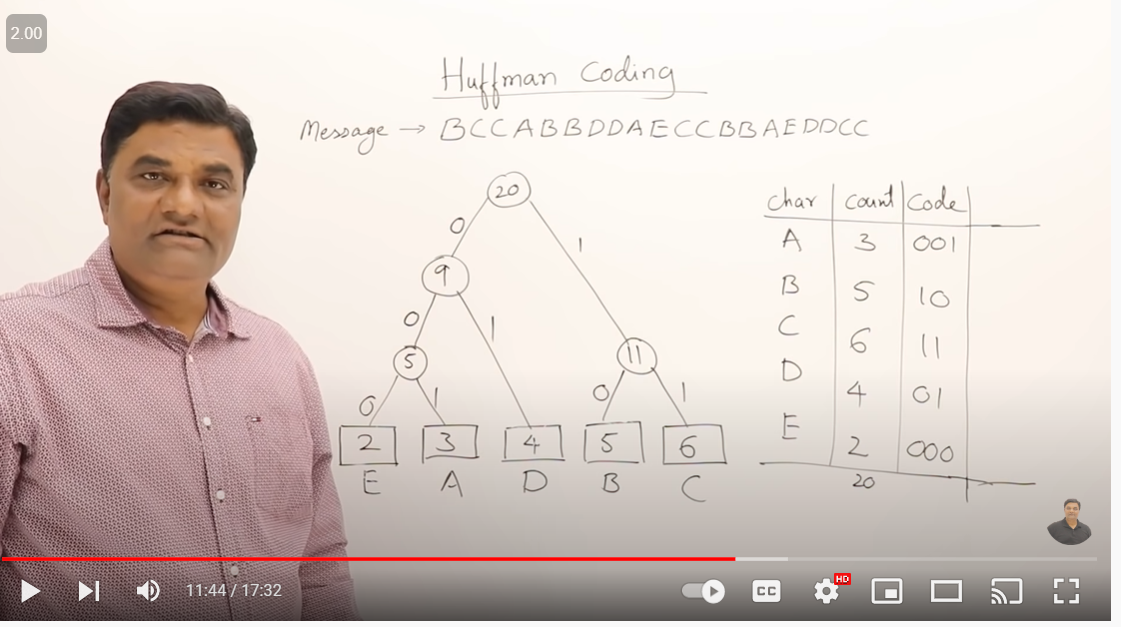 2.00
Huffman Coding
Message → BCCABBDDAECCBBAEDDCC
20
0 1
9
0 1
5 11
0 1 0 1
2 3 4 5 6
E A D B C
char count Code
A 3 001
B 5 10
C 6 11
D 4 01
E 2 000
20
11:44 / 17:32
CC
HD